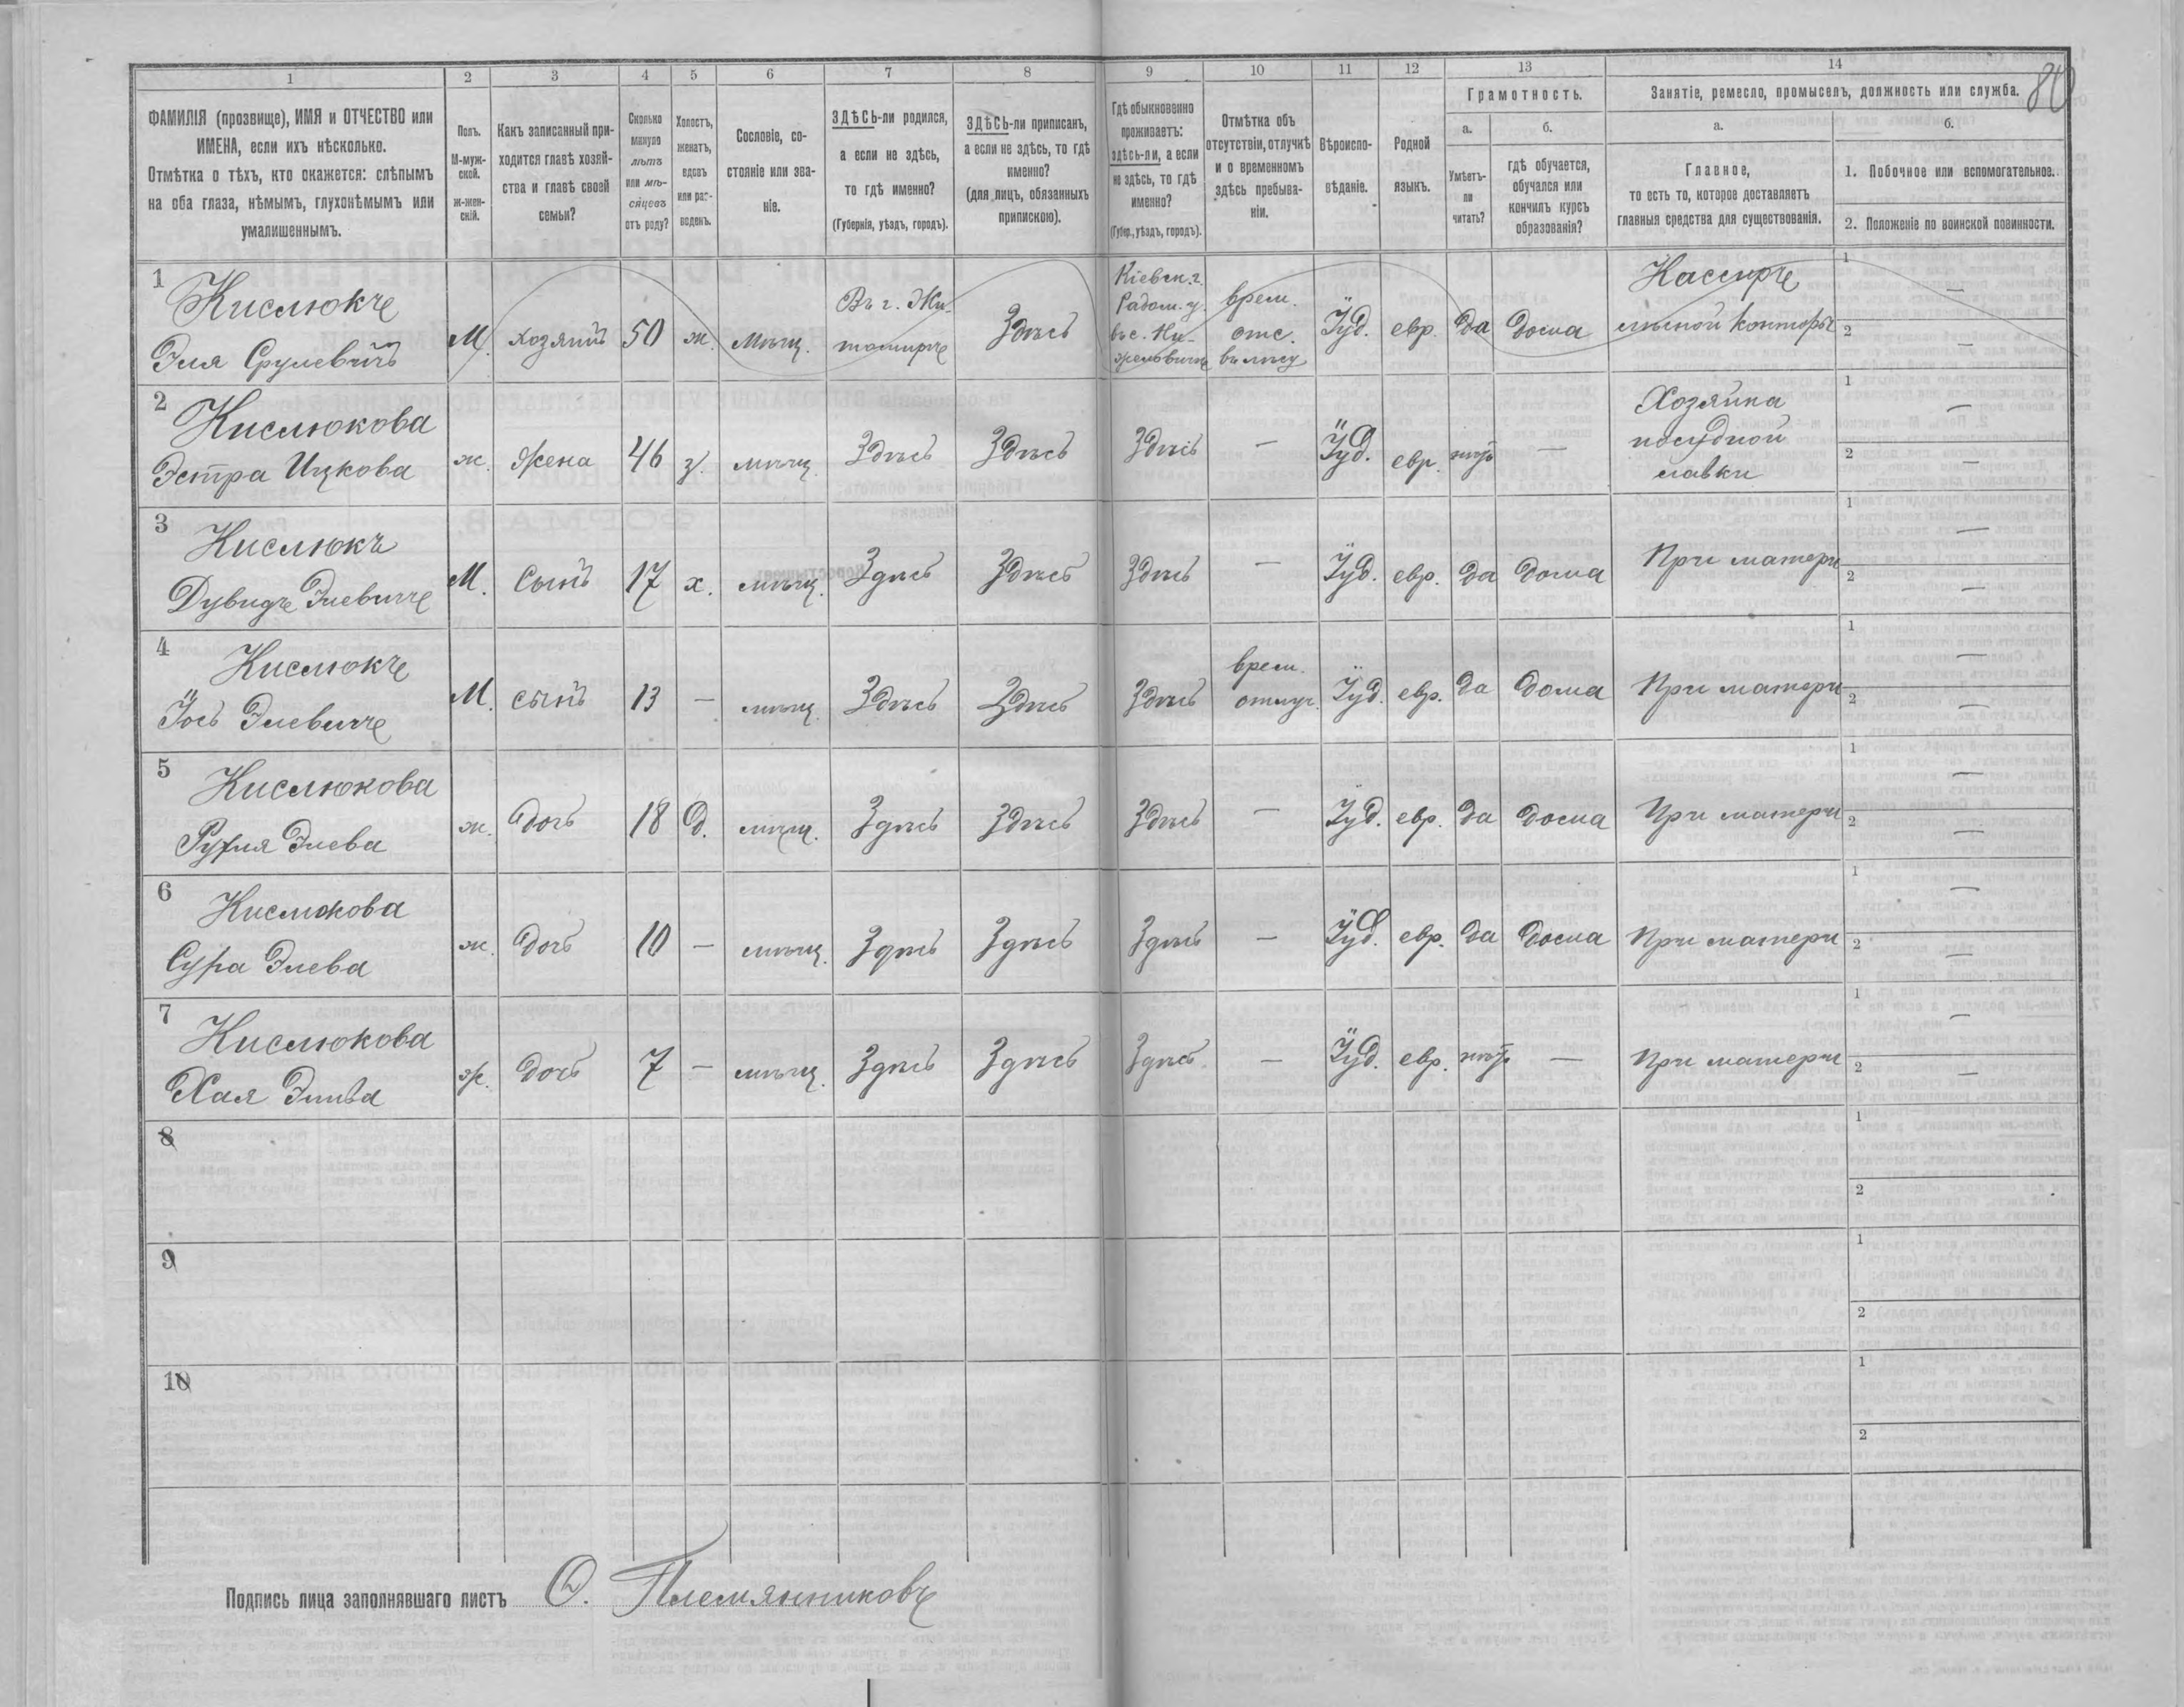 80
1 2 3 4 5 6 7 8 9 10 11 12 13 14
ФАМИЛІЯ (прозвище), ИМЯ и ОТЧЕСТВО или
ИМЕНА, если ихъ нѣсколько.
Отмѣтка о тѣхъ, кто окажется: слѣпымъ
на оба глаза, нѣмымъ, глухонѣмымъ или
умалишеннымъ.
Полъ.
М-муж-
ской.
ж-жен-
скій.
Какъ записанный при-
ходится главѣ хозяй-
ства и главѣ своей
семьи?
Сколько
минуло
лѣтъ
или мѣ-
сяцевъ
отъ роду?
Холостъ,
женатъ,
вдовъ
или раз-
веденъ.
Сословіе, со-
стояніе или зва-
ніе.
ЗДѢСЬ-ли родился,
а если не здѣсь,
то гдѣ именно?
(Губернія, уѣздъ, городъ).
ЗДѢСЬ-ли приписанъ,
а если не здѣсь, то гдѣ
именно?
(для лицъ, обязанныхъ
припискою).
Гдѣ обыкновенно
проживаетъ:
здѣсь-ли, а если
не здѣсь, то гдѣ
именно?
(Губер., уѣздъ, городъ).
Отмѣтка объ
отсутствіи, отлучкѣ
и о временномъ
здѣсь пребыва-
ніи.
Вѣроиспо-
вѣданіе.
Родной
языкъ.
Грамотность.
а.
Умѣетъ-
ли
читать?
б.
гдѣ обучается,
обучался или
кончилъ курсъ
образованія?
Занятіе, ремесло, промыселъ, должность или служба.
а.
Главное,
то есть то, которое доставляетъ
главныя средства для существованія.
б.
1. Побочное или вспомогательное.
2. Положеніе по воинской повинности.
1
Кислюкъ
Эля Срулевичъ
М. хозяинъ 50 ж. мѣщ.
Въ г. Жи-
томирѣ
Здѣсь
Кіевск. г.
Радом. у.
въ с.
врем.
отс.
въ лѣсу
Іуд. евр. да дома
Кассиръ
лѣсной конторы
1 —
2 —
2
Кислюкова
Эстра Ицкова
ж. жена 46 з. мѣщ. Здѣсь Здѣсь Здѣсь — Іуд. евр. нѣтъ —
Хозяйка
посудной
лавки
1 —
2 —
3
Кислюкъ
Дувидъ Элевичъ
М. сынъ 17 х. мѣщ. Здѣсь Здѣсь Здѣсь — Іуд. евр. да дома При матери
1 —
2 —
4
Кислюкъ
Іось Элевичъ
М. сынъ 13 — мѣщ. Здѣсь Здѣсь Здѣсь
врем.
отлуч.
Іуд. евр. да дома При матери
1 —
2 —
5
Кислюкова
Рухля Элева
ж. дочь 18 д. мѣщ. Здѣсь Здѣсь Здѣсь — Іуд. евр. да дома При матери
1 —
2 —
6
Кислюкова
Сура Элева
ж. дочь 10 — мѣщ. Здѣсь Здѣсь Здѣсь — Іуд. евр. да дома При матери
1 —
2 —
7
Кислюкова
Хая Элева
ж. дочь 7 — мѣщ. Здѣсь Здѣсь Здѣсь — Іуд. евр. нѣтъ — При матери
1 —
2 —
8
1
2
9
1
2
10
1
2
Подпись лица заполнявшаго листъ О. Племянниковъ